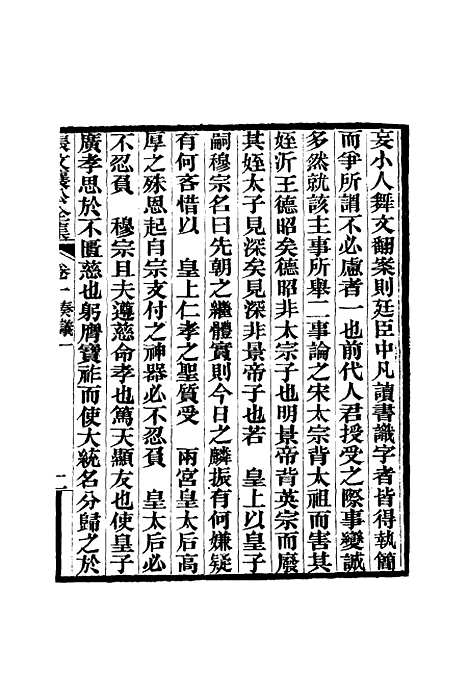 妄小人舞文翻案則廷臣中凡讀書識字者皆得執簡
而爭所謂不必慮者一也前代人君授受之際事變誠
多然就該主事所舉二事論之宋太宗背太祖而害其
姪沂王德昭矣德昭非太宗子也明景帝背英宗而廢
其姪太子見深矣見深非景帝子也若　皇上以皇子
嗣穆宗名曰先朝之繼體實則今日之麟振有何嫌疑
有何吝惜以　皇上仁孝之聖質受　兩宮皇太后高
厚之殊恩起自宗支付之神器必不忍負　皇太后必
不忍負　穆宗且夫遵慈命孝也篤天顯友也使皇子
廣孝思於不匱慈也躬膺寶祚而使大統名分歸之於
張文襄公全集　卷一　奏議一　十一